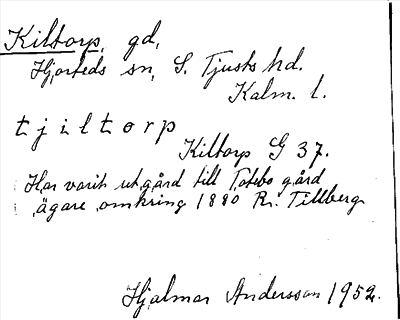 Kiltorp, gd,
Hjorteds sn, S. Tjusts hd.
Kalm. l.
tjiltorp
Kiltorp G 37.
Har varit utgård till Totebo gård
ägare omkring 1880 R. Tillberg
Hjalmar Andersson 1952.